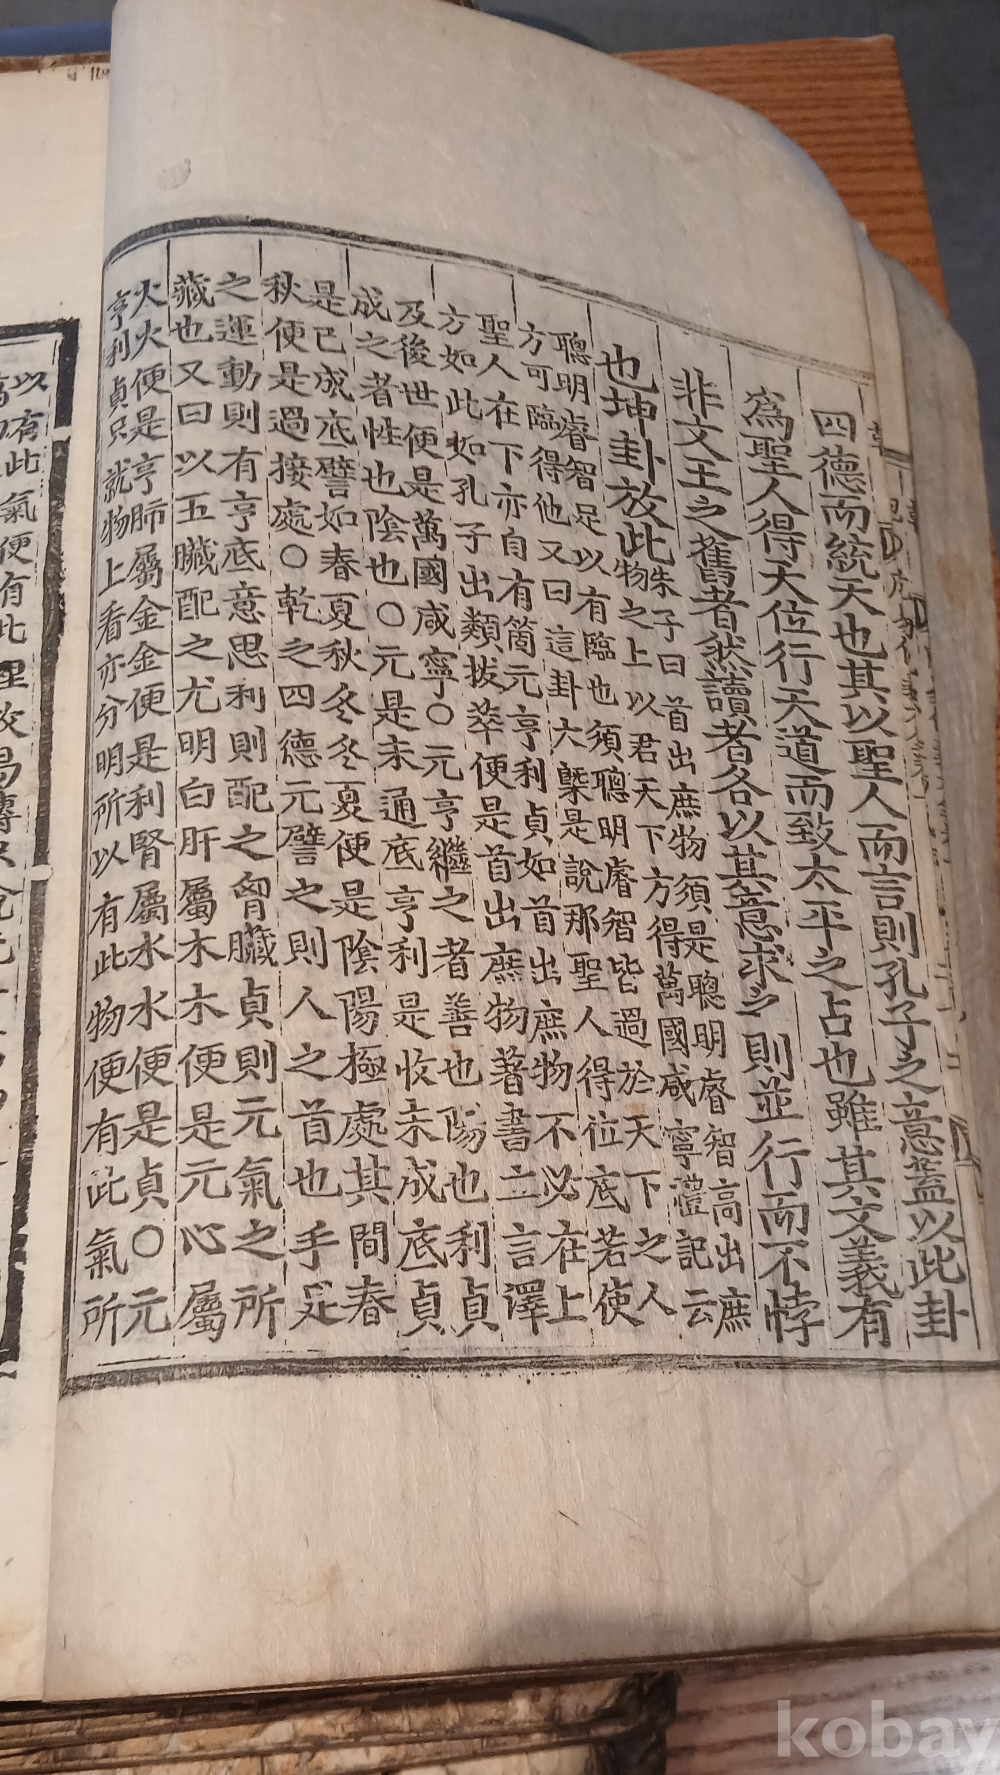 四德而統天也其以聖人而言則孔子之意蓋以此卦
爲聖人得天位行天道而致太平之占也雖其文義有
非文王之舊者然讀者各以其意求之則並行而不悖
也坤卦放此
朱子曰首出庶物須是聰明睿智高出庶
物之上以君天下方得萬國咸寧禮記云
聰明睿智足以有臨也須聰明睿智皆過於天下之人
方可臨得他又曰這卦大槩是說那聖人得位底若使
聖人在下亦自有箇元亨利貞如首出庶物不必在上
方如此如孔子出類拔萃便是首出庶物著書立言澤
及後世便是萬國咸寧○元亨繼之者善也陽也利貞
成之者性也陰也○元是未通底亨利是收未成底貞
是已成底譬如春夏秋冬冬夏便是陰陽極處其間春
秋便是過接處○乾之四德元譬之則人之首也手足
之運動則有亨底意思利則配之胷臟貞則元氣之所
藏也又曰以五臟配之尤明白肝屬木木便是元心屬
火火便是亨肺屬金金便是利腎屬水水便是貞○元
亨利貞只就物上看亦分明所以有此物便有此氣所
以有此氣便有此理故易傳只說元
kobay